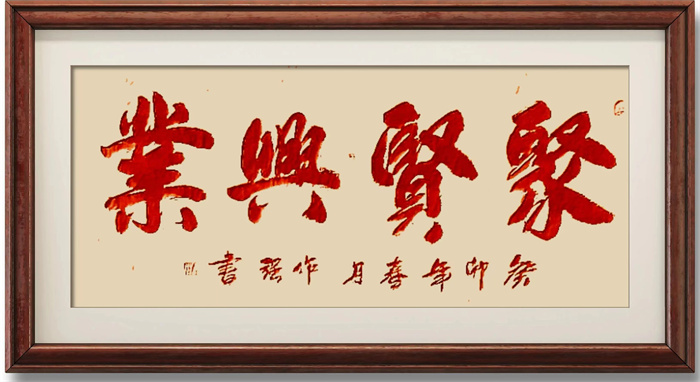 聚賢興業
癸卯年春月作强書